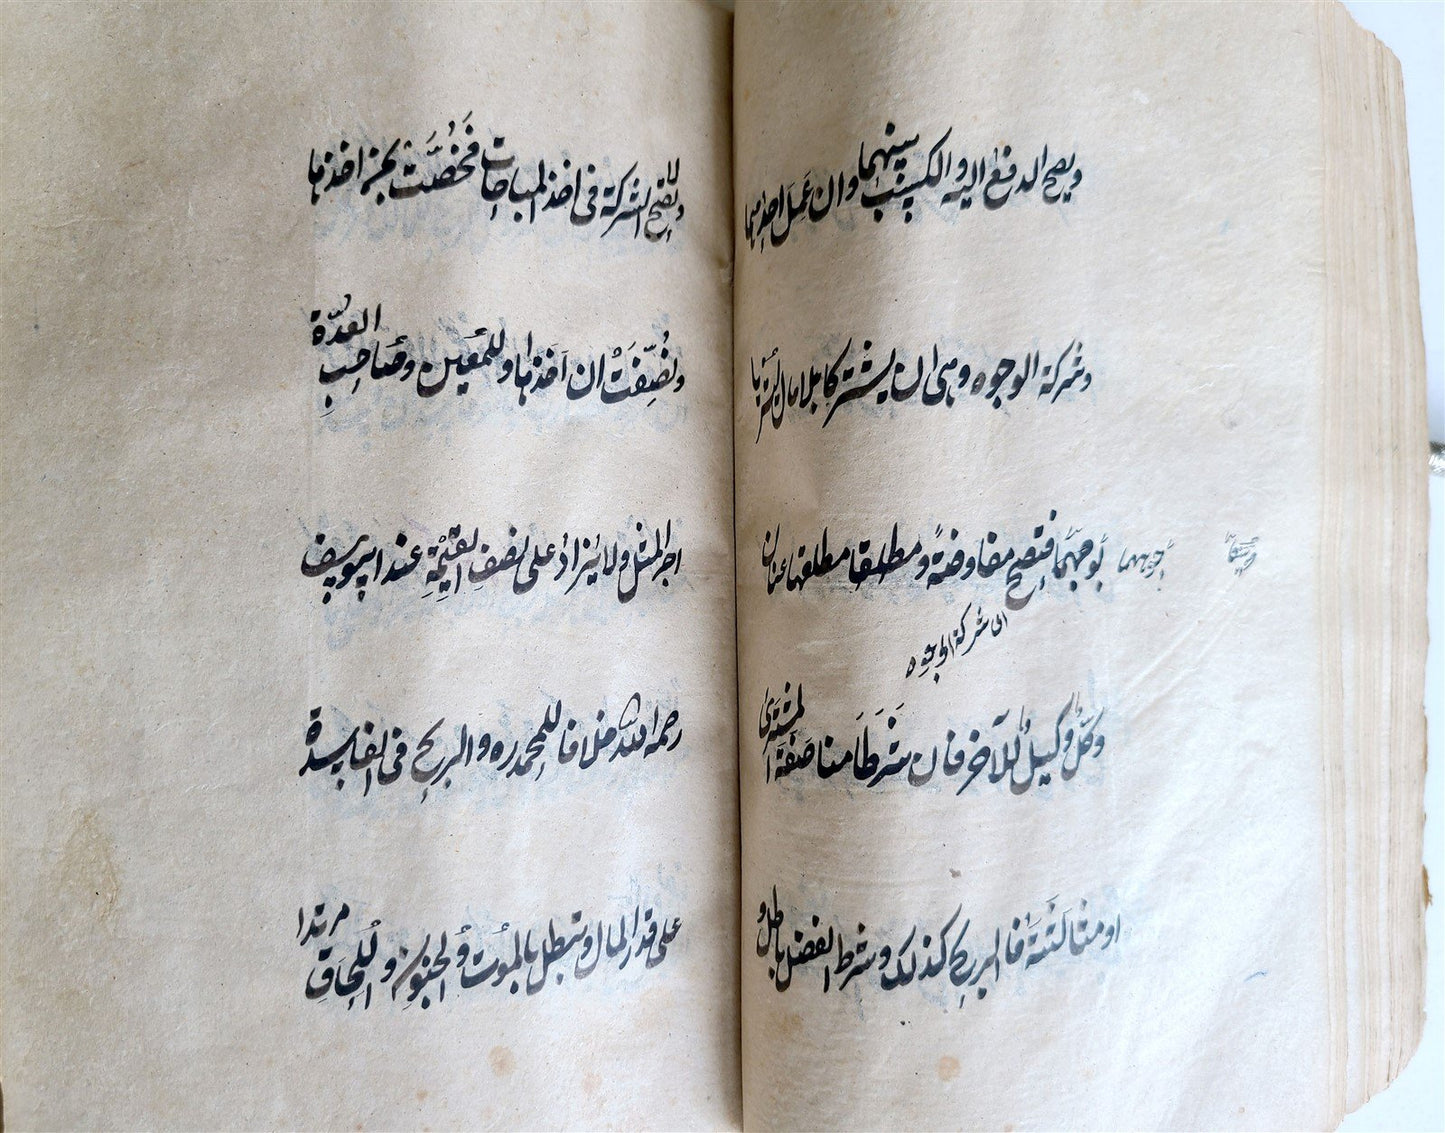 ويصح الدفع اليه والكسب بينهما وان عمل احدهما
وشركة الوجوه وهى ان يشتركا بلا مال ليشتريا
بوجههما فتصح مفاوضة ومطلقا مطلقها عنان
اى شركة الوجوه
وكل وكيل للآخر فان شرطا مناصفة المشترى
او مثالثته فالربح كذلك وشرط الفضل باطل و
ولا تصح الشركة فى اخذ المباحات فخصت بمن اخذها
ونصفت ان اخذاها وللمعين وصاحب العدة
اجر المثل ولا يزاد على نصف القيمة عند ابى يوسف
رحمه الله خلافا لمحمد ره والربح فى الفاسدة
على قدر المال وتبطل بالموت والجنون واللحاق مرتدا